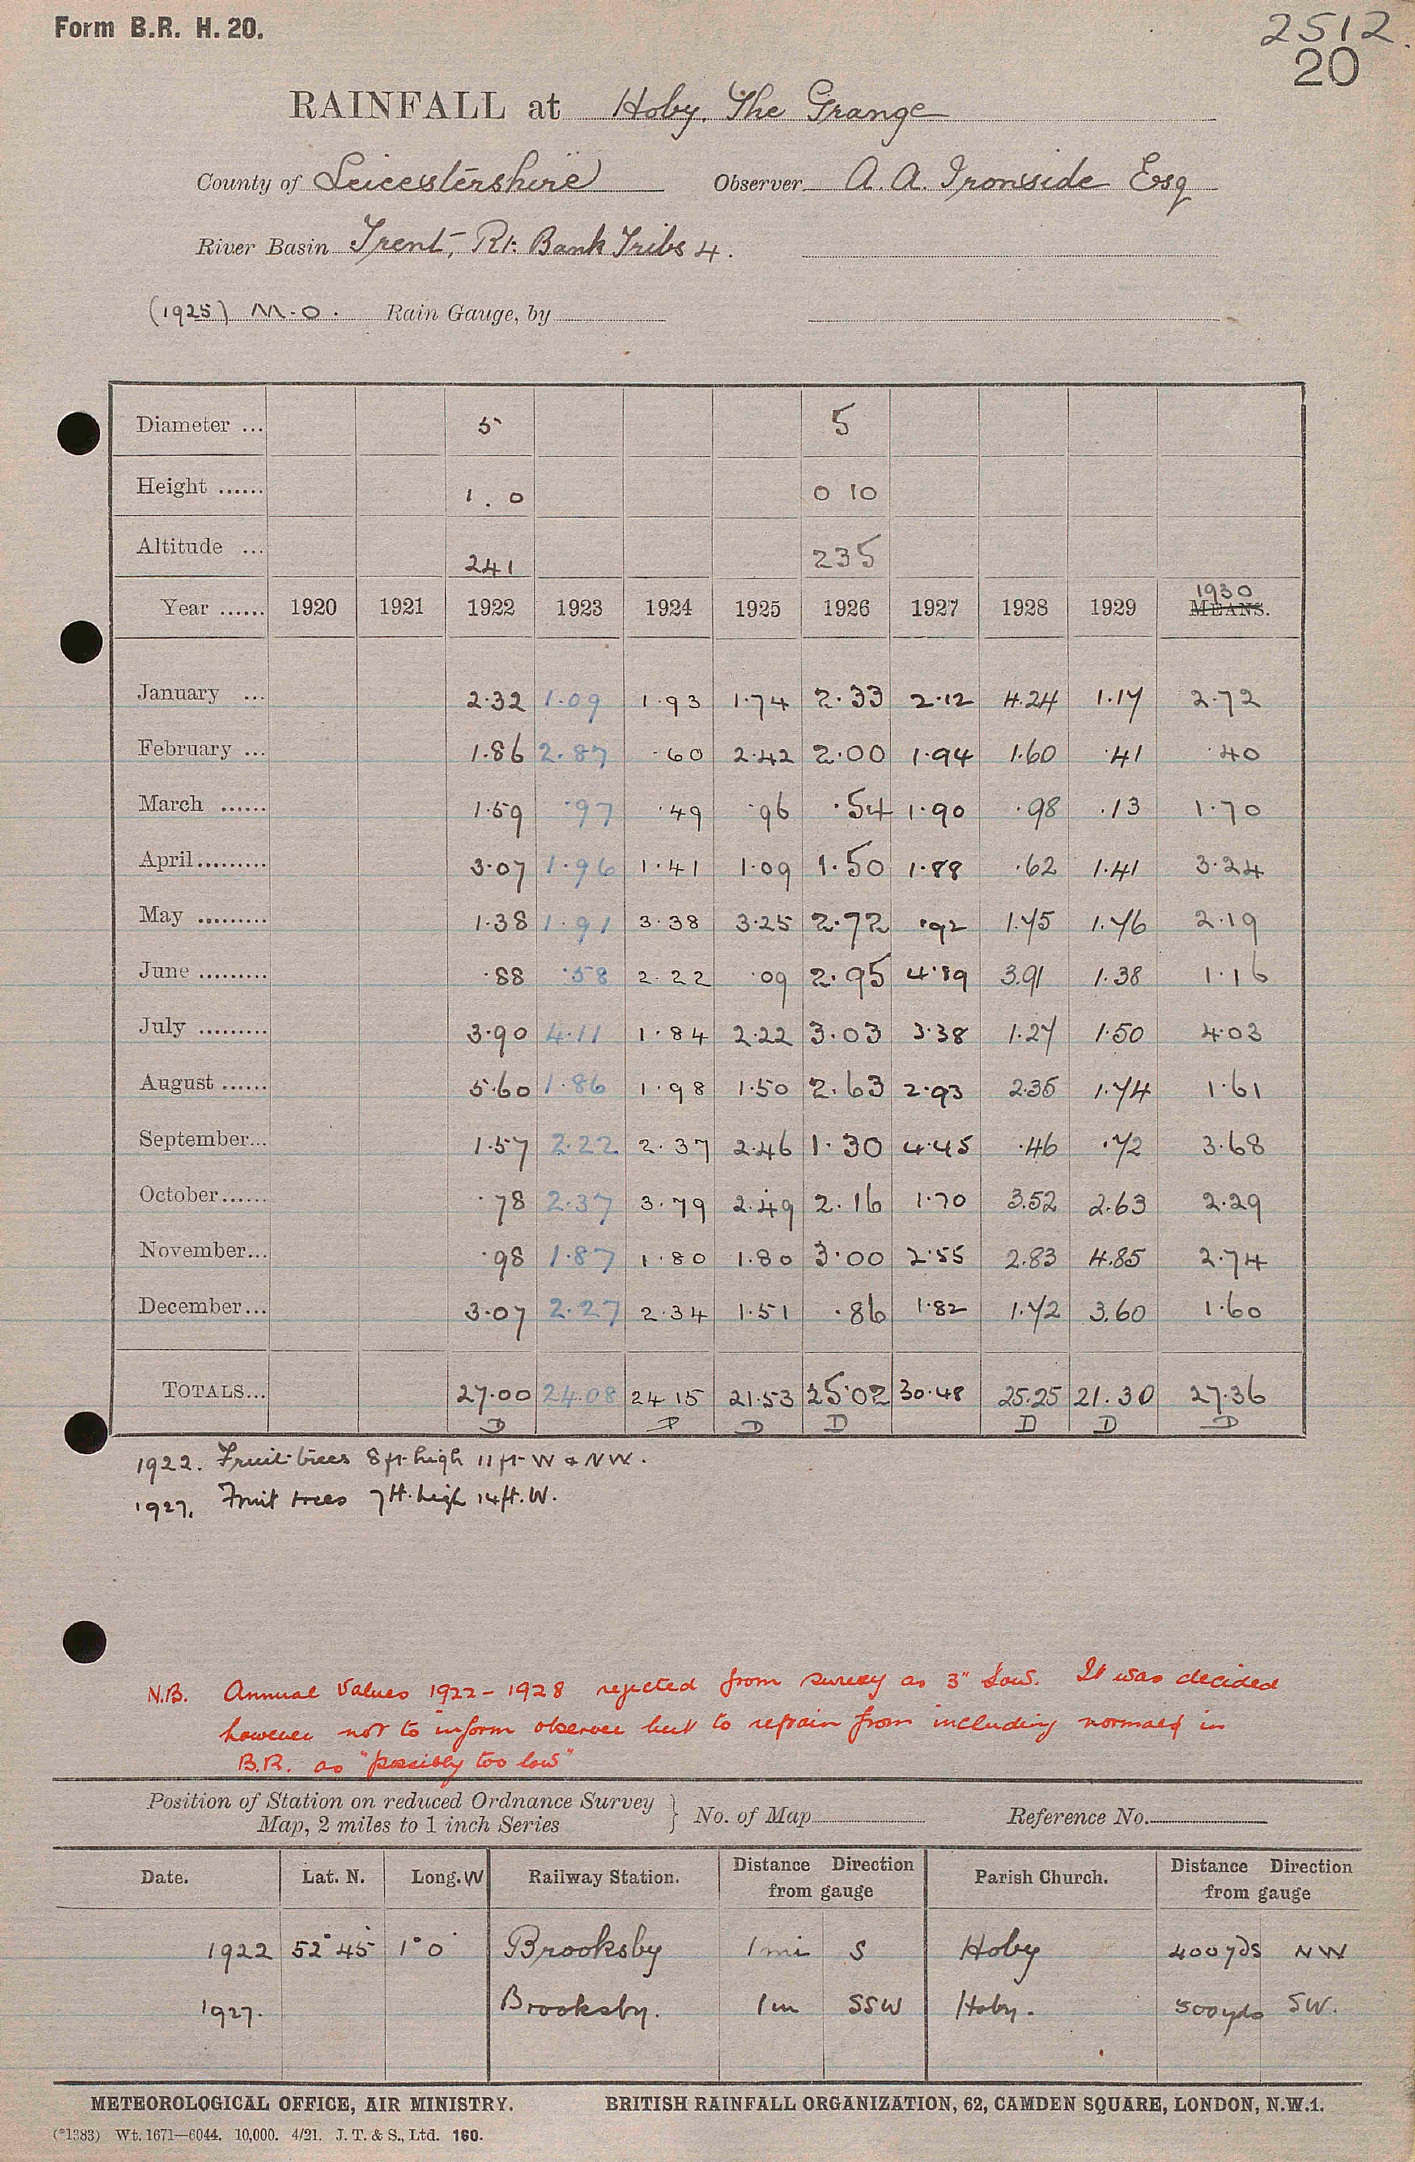 Form B.R. H. 20.
2512.
20
RAINFALL at Hoby. The Grange
County of Leicestershire Observer A. A. Ironside Esq
River Basin Trent, Rt. Bank Tribs 4.
(1925) M.O. Rain Gauge, by
Diameter ... 5 5
Height ...... 1.0 0 10
Altitude ... 241 235
Year ...... 1920 1921 1922 1923 1924 1925 1926 1927 1928 1929 1930 MEANS.
January ... 2.32 1.09 1.93 1.74 2.33 2.12 4.24 1.17 2.72
February ... 1.86 2.87 .60 2.42 2.00 1.94 1.60 .41 .40
March ...... 1.59 .97 .49 .96 .54 1.90 .98 .13 1.70
April......... 3.07 1.96 1.41 1.09 1.50 1.88 .62 1.41 3.24
May ......... 1.38 1.91 3.38 3.25 2.72 .92 1.75 1.76 2.19
June ......... .88 .58 2.22 .09 2.95 4.89 3.91 1.38 1.16
July ......... 3.90 4.11 1.84 2.22 3.03 3.38 1.27 1.50 4.03
August ...... 5.60 1.86 1.98 1.50 2.63 2.93 2.35 1.74 1.61
September... 1.57 2.22 2.37 2.46 1.30 4.45 .46 .72 3.68
October...... .78 2.37 3.79 2.49 2.16 1.70 3.52 2.63 2.29
November... .98 1.87 1.80 1.80 3.00 2.55 2.83 4.85 2.74
December... 3.07 2.27 2.34 1.51 .86 1.82 1.72 3.60 1.60
TOTALS... 27.00 24.08 24.15 21.53 25.02 30.48 25.25 21.30 27.36
D D D D D D D
1922. Fruit trees 8ft. high 11 ft. W & NW.
1927. Fruit trees 7ft. high 14ft. W.
N.B. Annual Values 1922-1928 rejected from survey as 3" low. It was decided
however not to inform observer but to refrain from including normal in
B.R. as "possibly too low"
Position of Station on reduced Ordnance Survey
Map, 2 miles to 1 inch Series } No. of Map Reference No.
Date. Lat. N. Long. W Railway Station. Distance Direction from gauge Parish Church. Distance Direction from gauge
1922 52° 45' 1° 0' Brooksby 1 mi S Hoby 400 yds NW
1927. Brooksby. 1 m SSW Hoby. 500 yds SW.
METEOROLOGICAL OFFICE, AIR MINISTRY. BRITISH RAINFALL ORGANIZATION, 62, CAMDEN SQUARE, LONDON, N.W.1.
(*1383) Wt. 1671—6044. 10,000. 4/21. J. T. & S., Ltd. 160.